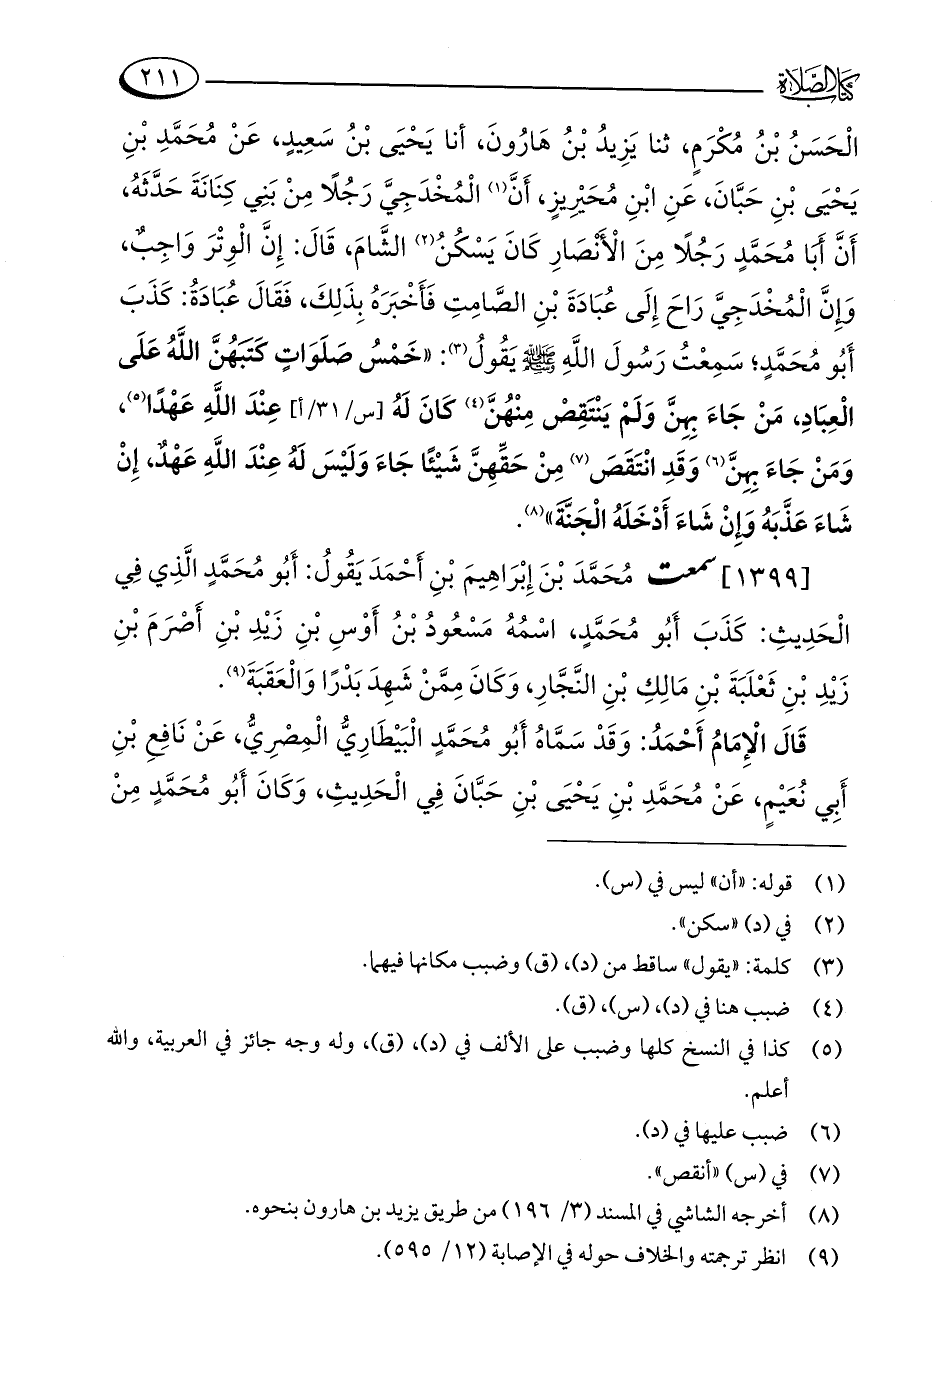 كتاب الصلاة ٢١١
الْحَسَنُ بْنُ مُكْرَمٍ، ثنا يَزِيدُ بْنُ هَارُونَ، أنا يَحْيَى بْنُ سَعِيدٍ، عَنْ مُحَمَّدِ بْنِ
يَحْيَى بْنِ حَبَّانَ، عَنِ ابْنِ مُحَيْرِيزٍ، أَنَّ(١) الْمُخْدَجِيَّ رَجُلًا مِنْ بَنِي كِنَانَةَ حَدَّثَهُ،
أَنَّ أَبَا مُحَمَّدٍ رَجُلًا مِنَ الْأَنْصَارِ كَانَ يَسْكُنُ(٢) الشَّامَ، قَالَ: إِنَّ الْوِتْرَ وَاجِبٌ،
وَإِنَّ الْمُخْدَجِيَّ رَاحَ إِلَى عُبَادَةَ بْنِ الصَّامِتِ فَأَخْبَرَهُ بِذَلِكَ، فَقَالَ عُبَادَةُ: كَذَبَ
أَبُو مُحَمَّدٍ؛ سَمِعْتُ رَسُولَ اللَّهِ ﷺ يَقُولُ(٣): «خَمْسُ صَلَوَاتٍ كَتَبَهُنَّ اللَّهُ عَلَى
الْعِبَادِ، مَنْ جَاءَ بِهِنَّ وَلَمْ يَنْتَقِصْ مِنْهُنَّ(٤) كَانَ لَهُ [س/٣١/أ] عِنْدَ اللَّهِ عَهْدًا(٥)،
وَمَنْ جَاءَ بِهِنَّ(٦) وَقَدِ انْتَقَصَ(٧) مِنْ حَقِّهِنَّ شَيْئًا جَاءَ وَلَيْسَ لَهُ عِنْدَ اللَّهِ عَهْدٌ، إِنْ
شَاءَ عَذَّبَهُ وَإِنْ شَاءَ أَدْخَلَهُ الْجَنَّةَ»(٨).
[١٣٩٩] سمعت مُحَمَّدَ بْنَ إِبْرَاهِيمَ بْنِ أَحْمَدَ يَقُولُ: أَبُو مُحَمَّدٍ الَّذِي فِي
الْحَدِيثِ: كَذَبَ أَبُو مُحَمَّدٍ، اسْمُهُ مَسْعُودُ بْنُ أَوْسِ بْنِ زَيْدِ بْنِ أَصْرَمَ بْنِ
زَيْدِ بْنِ ثَعْلَبَةَ بْنِ مَالِكِ بْنِ النَّجَّارِ، وَكَانَ مِمَّنْ شَهِدَ بَدْرًا وَالْعَقَبَةَ(٩).
قَالَ الْإِمَامُ أَحْمَدُ: وَقَدْ سَمَّاهُ أَبُو مُحَمَّدٍ الْبَيْطَارِيُّ الْمِصْرِيُّ، عَنْ نَافِعِ بْنِ
أَبِي نُعَيْمٍ، عَنْ مُحَمَّدِ بْنِ يَحْيَى بْنِ حَبَّانَ فِي الْحَدِيثِ، وَكَانَ أَبُو مُحَمَّدٍ مِنْ
(١) قوله: «أن» ليس في (س).
(٢) في (د) «سكن».
(٣) كلمة: «يقول» ساقط من (د)، (ق) وضبب مكانها فيهما.
(٤) ضبب هنا في (د)، (س)، (ق).
(٥) كذا في النسخ كلها وضبب على الألف في (د)، (ق)، وله وجه جائز في العربية، والله
أعلم.
(٦) ضبب عليها في (د).
(٧) في (س) «أنقص».
(٨) أخرجه الشاشي في المسند (٣/ ١٩٦) من طريق يزيد بن هارون بنحوه.
(٩) انظر ترجمته والخلاف حوله في الإصابة (١٢/ ٥٩٥).